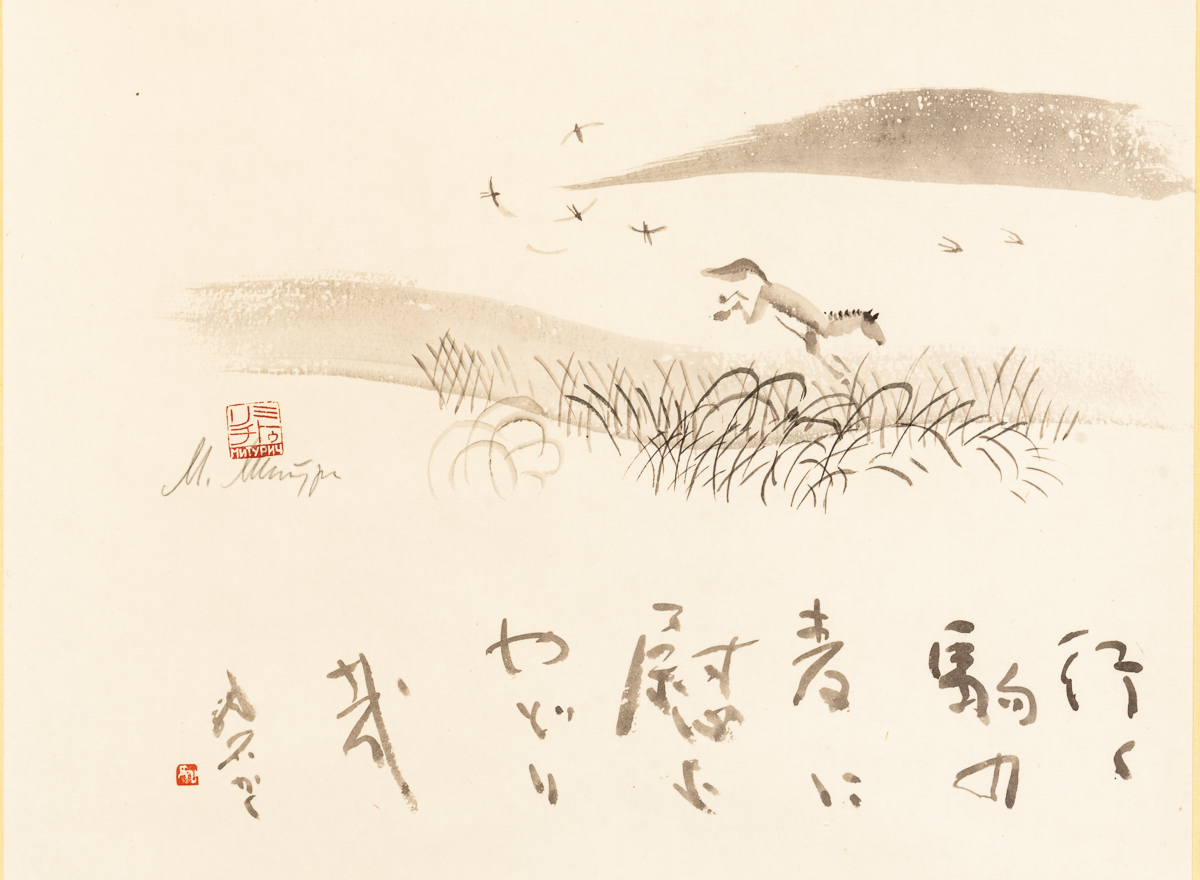 ミトゥ
リチ
МИТУРИЧ
М. Митури
行く
駒の
麦に
慰む
やどり
哉